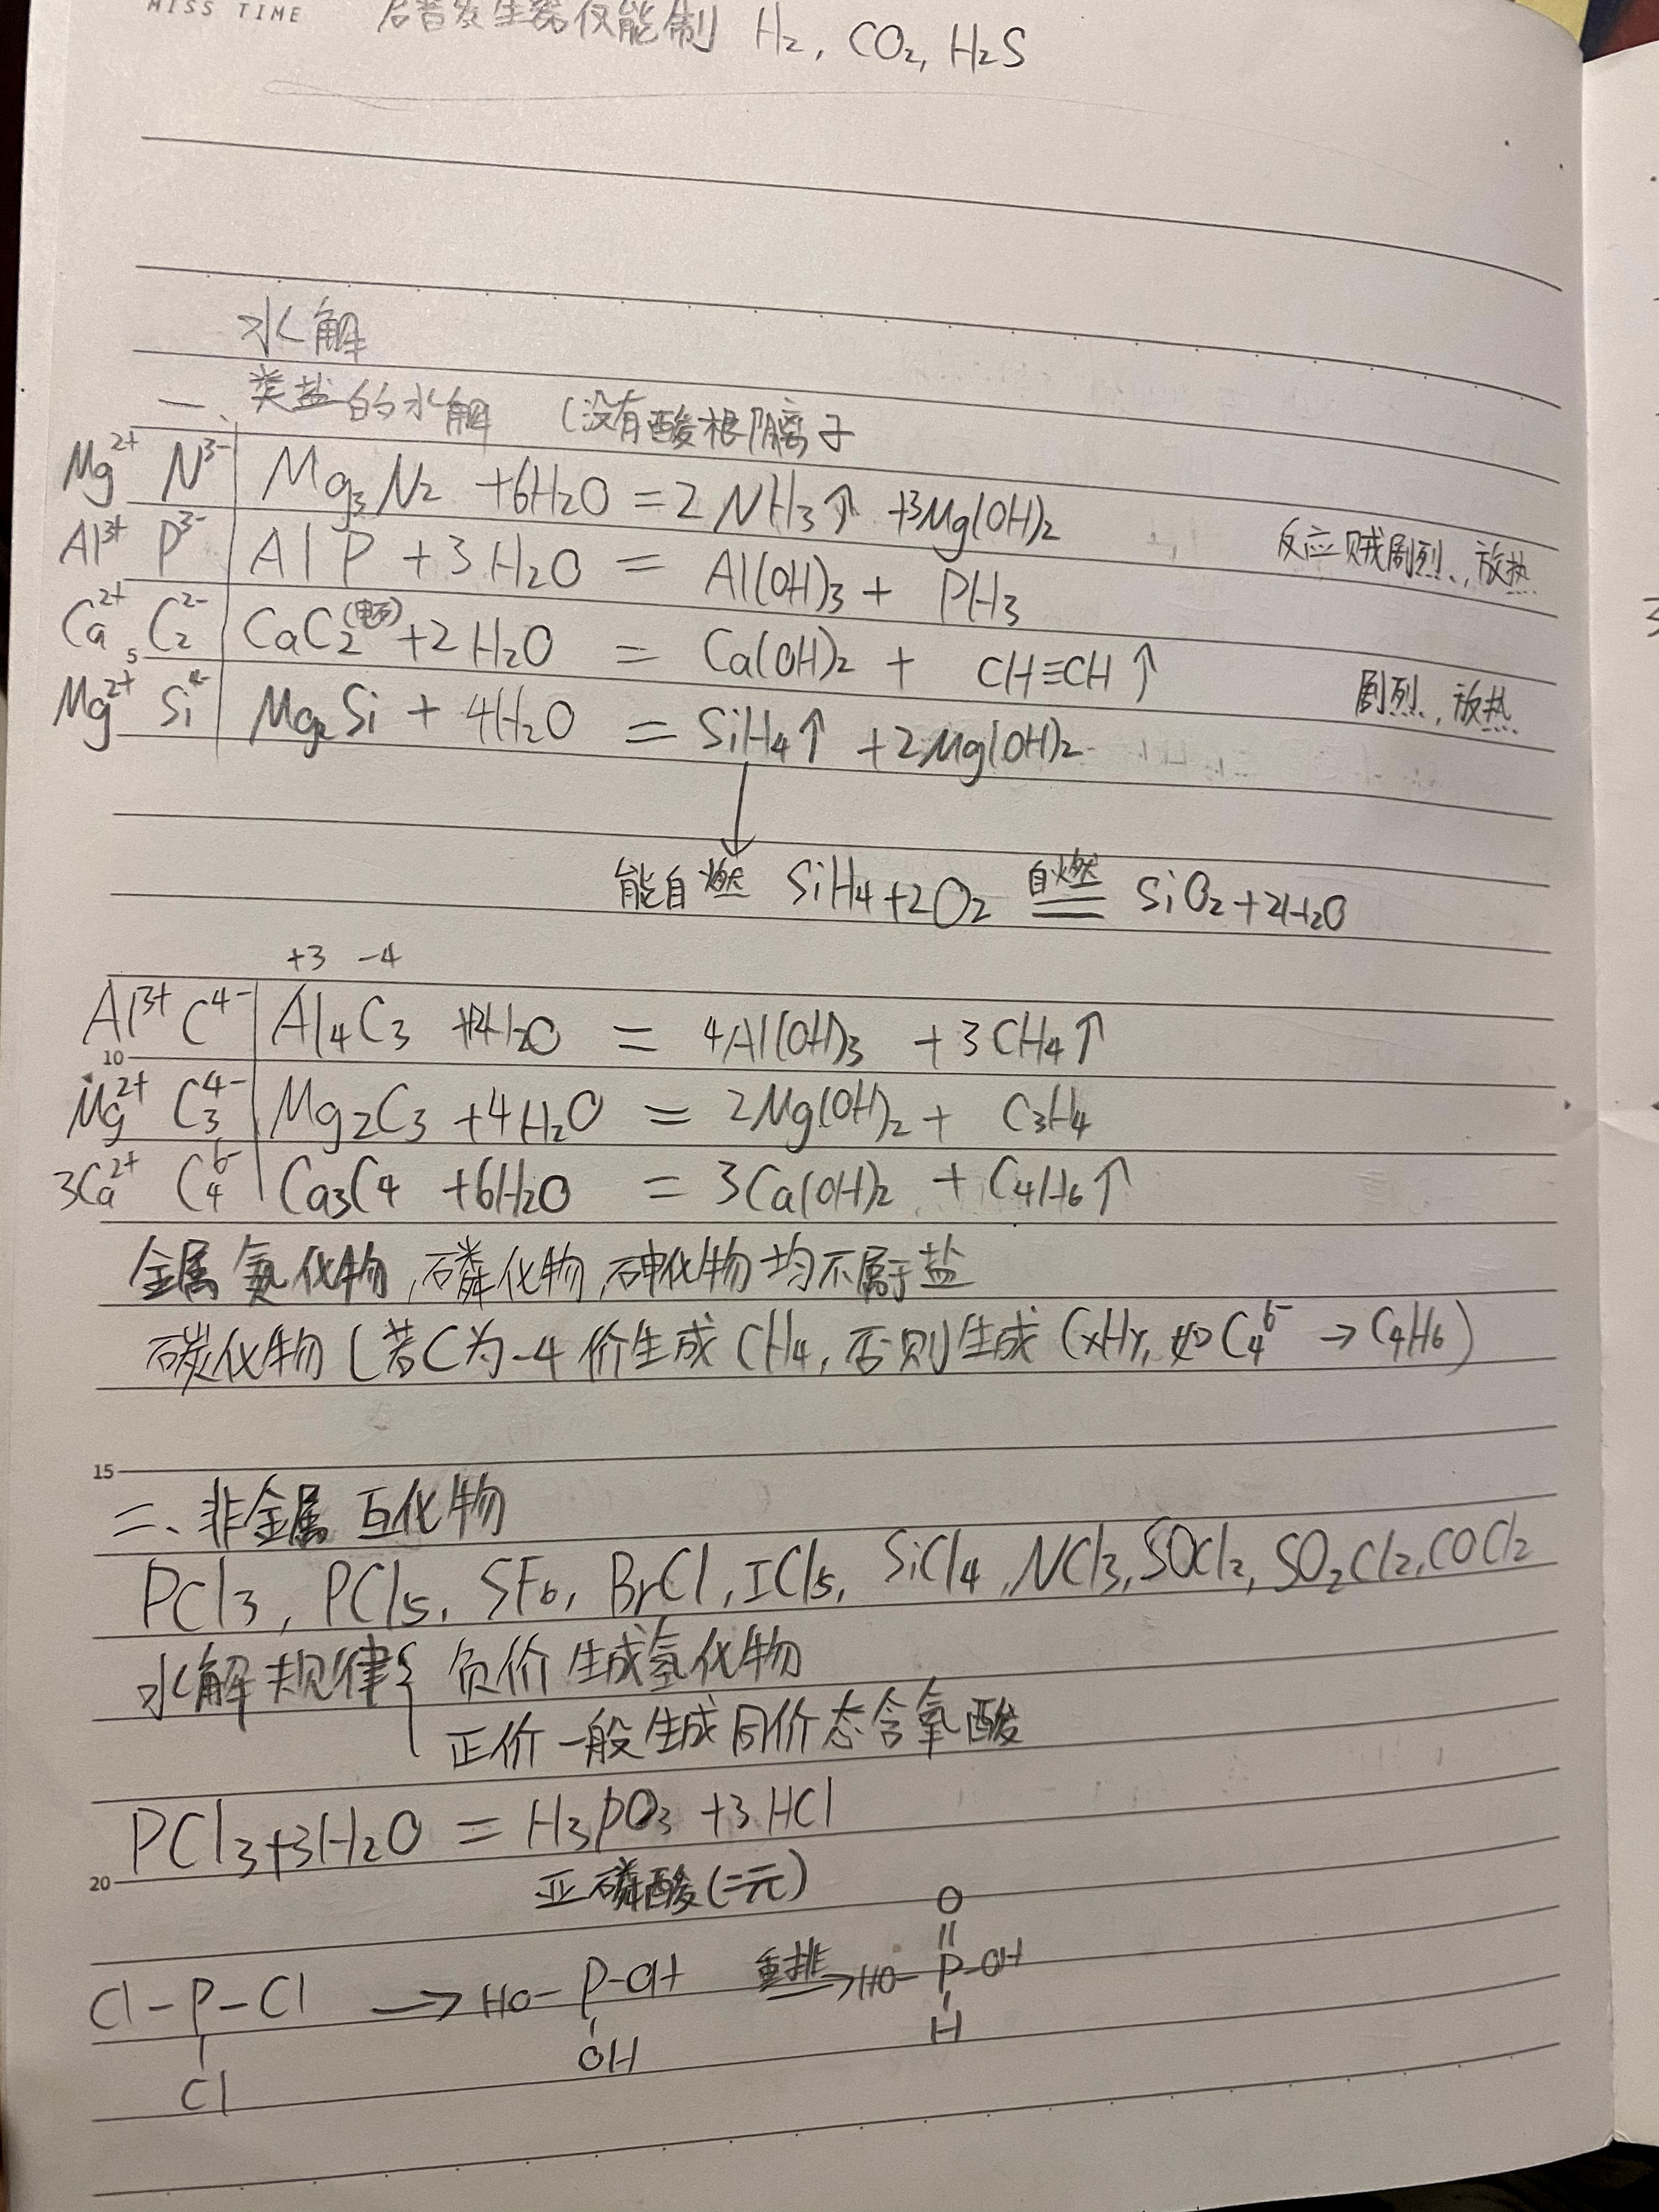 MISS TIME 启普发生器仅能制 H₂, CO₂, H₂S
水解
一、类盐的水解 (没有酸根阴离子
Mg²⁺ N³⁻ | Mg₃N₂ + 6H₂O = 2NH₃↑ + 3Mg(OH)₂
Al³⁺ P³⁻ | AlP + 3H₂O = Al(OH)₃ + PH₃ 反应贼剧烈、放热
5 Ca²⁺ C₂²⁻ | CaC₂ + 2H₂O = Ca(OH)₂ + CH≡CH↑
Mg²⁺ Si⁴⁻ | Mg₂Si + 4H₂O = SiH₄↑ + 2Mg(OH)₂ 剧烈、放热
能自燃 SiH₄ + 2O₂ 自燃 SiO₂ + 2H₂O
+3 -4
Al³⁺ C⁴⁻ | Al₄C₃ + 12H₂O = 4Al(OH)₃ + 3CH₄↑
10 Mg²⁺ C₃⁴⁻ | Mg₂C₃ + 4H₂O = 2Mg(OH)₂ + C₃H₄
3Ca²⁺ C₄⁶⁻ | Ca₃C₄ + 6H₂O = 3Ca(OH)₂ + C₄H₆↑
金属氮化物、磷化物、砷化物均不属于盐
碳化物 (若C为-4价生成CH₄, 否则生成CxHy, 如C₄⁶⁻ → C₄H₆)
15 二、非金属互化物
PCl₃, PCl₅, SF₆, BrCl, ICl₅, SiCl₄, NCl₃, SOCl₂, SO₂Cl₂, COCl₂
水解规律 { 负价生成氢化物
正价一般生成同价态含氧酸
PCl₃ + 3H₂O = H₃PO₃ + 3HCl
20 亚磷酸(二元)
O
Cl-P-Cl → HO-P-OH 重排→ HO-P-OH
Cl OH H